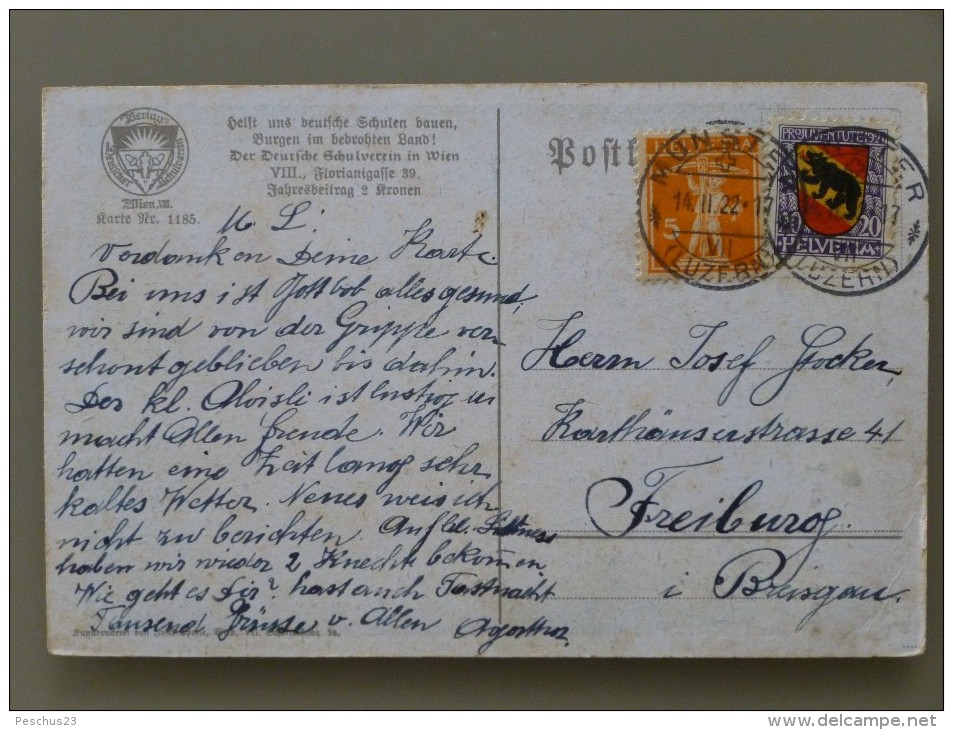 Verlag
Deutscher Schulverein
Wien, VIII.
Karte Nr. 1185.
Helft uns deutsche Schulen bauen,
Burgen im bedrohten Land!
Der Deutsche Schulverein in Wien
VIII., Florianigasse 39.
Jahresbeitrag 2 Kronen
Postk
5
PRO JUVENTUTE 1921
20 20
HELVETIA
MÜNSTER
14.II.22·17
VII
(LUZERN)
17
VII
(LUZERN)
M. L.
Verdanken Deine Karte.
Bei uns ist Gott lob alles gesund,
wir sind von der Grippe ver-
schont geblieben bis dahin.
Der kl. Aloisli ist lustig u
macht Allen freude. Wir
hatten eine Zeit lang sehr
kaltes Wetter. Neues weis ich
nicht zu berichten. Auf
haben wir wieder 2 Knechte bekommen
Wie geht es Dir? hast auch Fastnacht
Tausend Grüsse v. Allen
Agatha
Herrn Josef Stocker,
Karthäuserstrasse 41
Freiburg.
i Breisgau.
Peschus23
delcampe.net